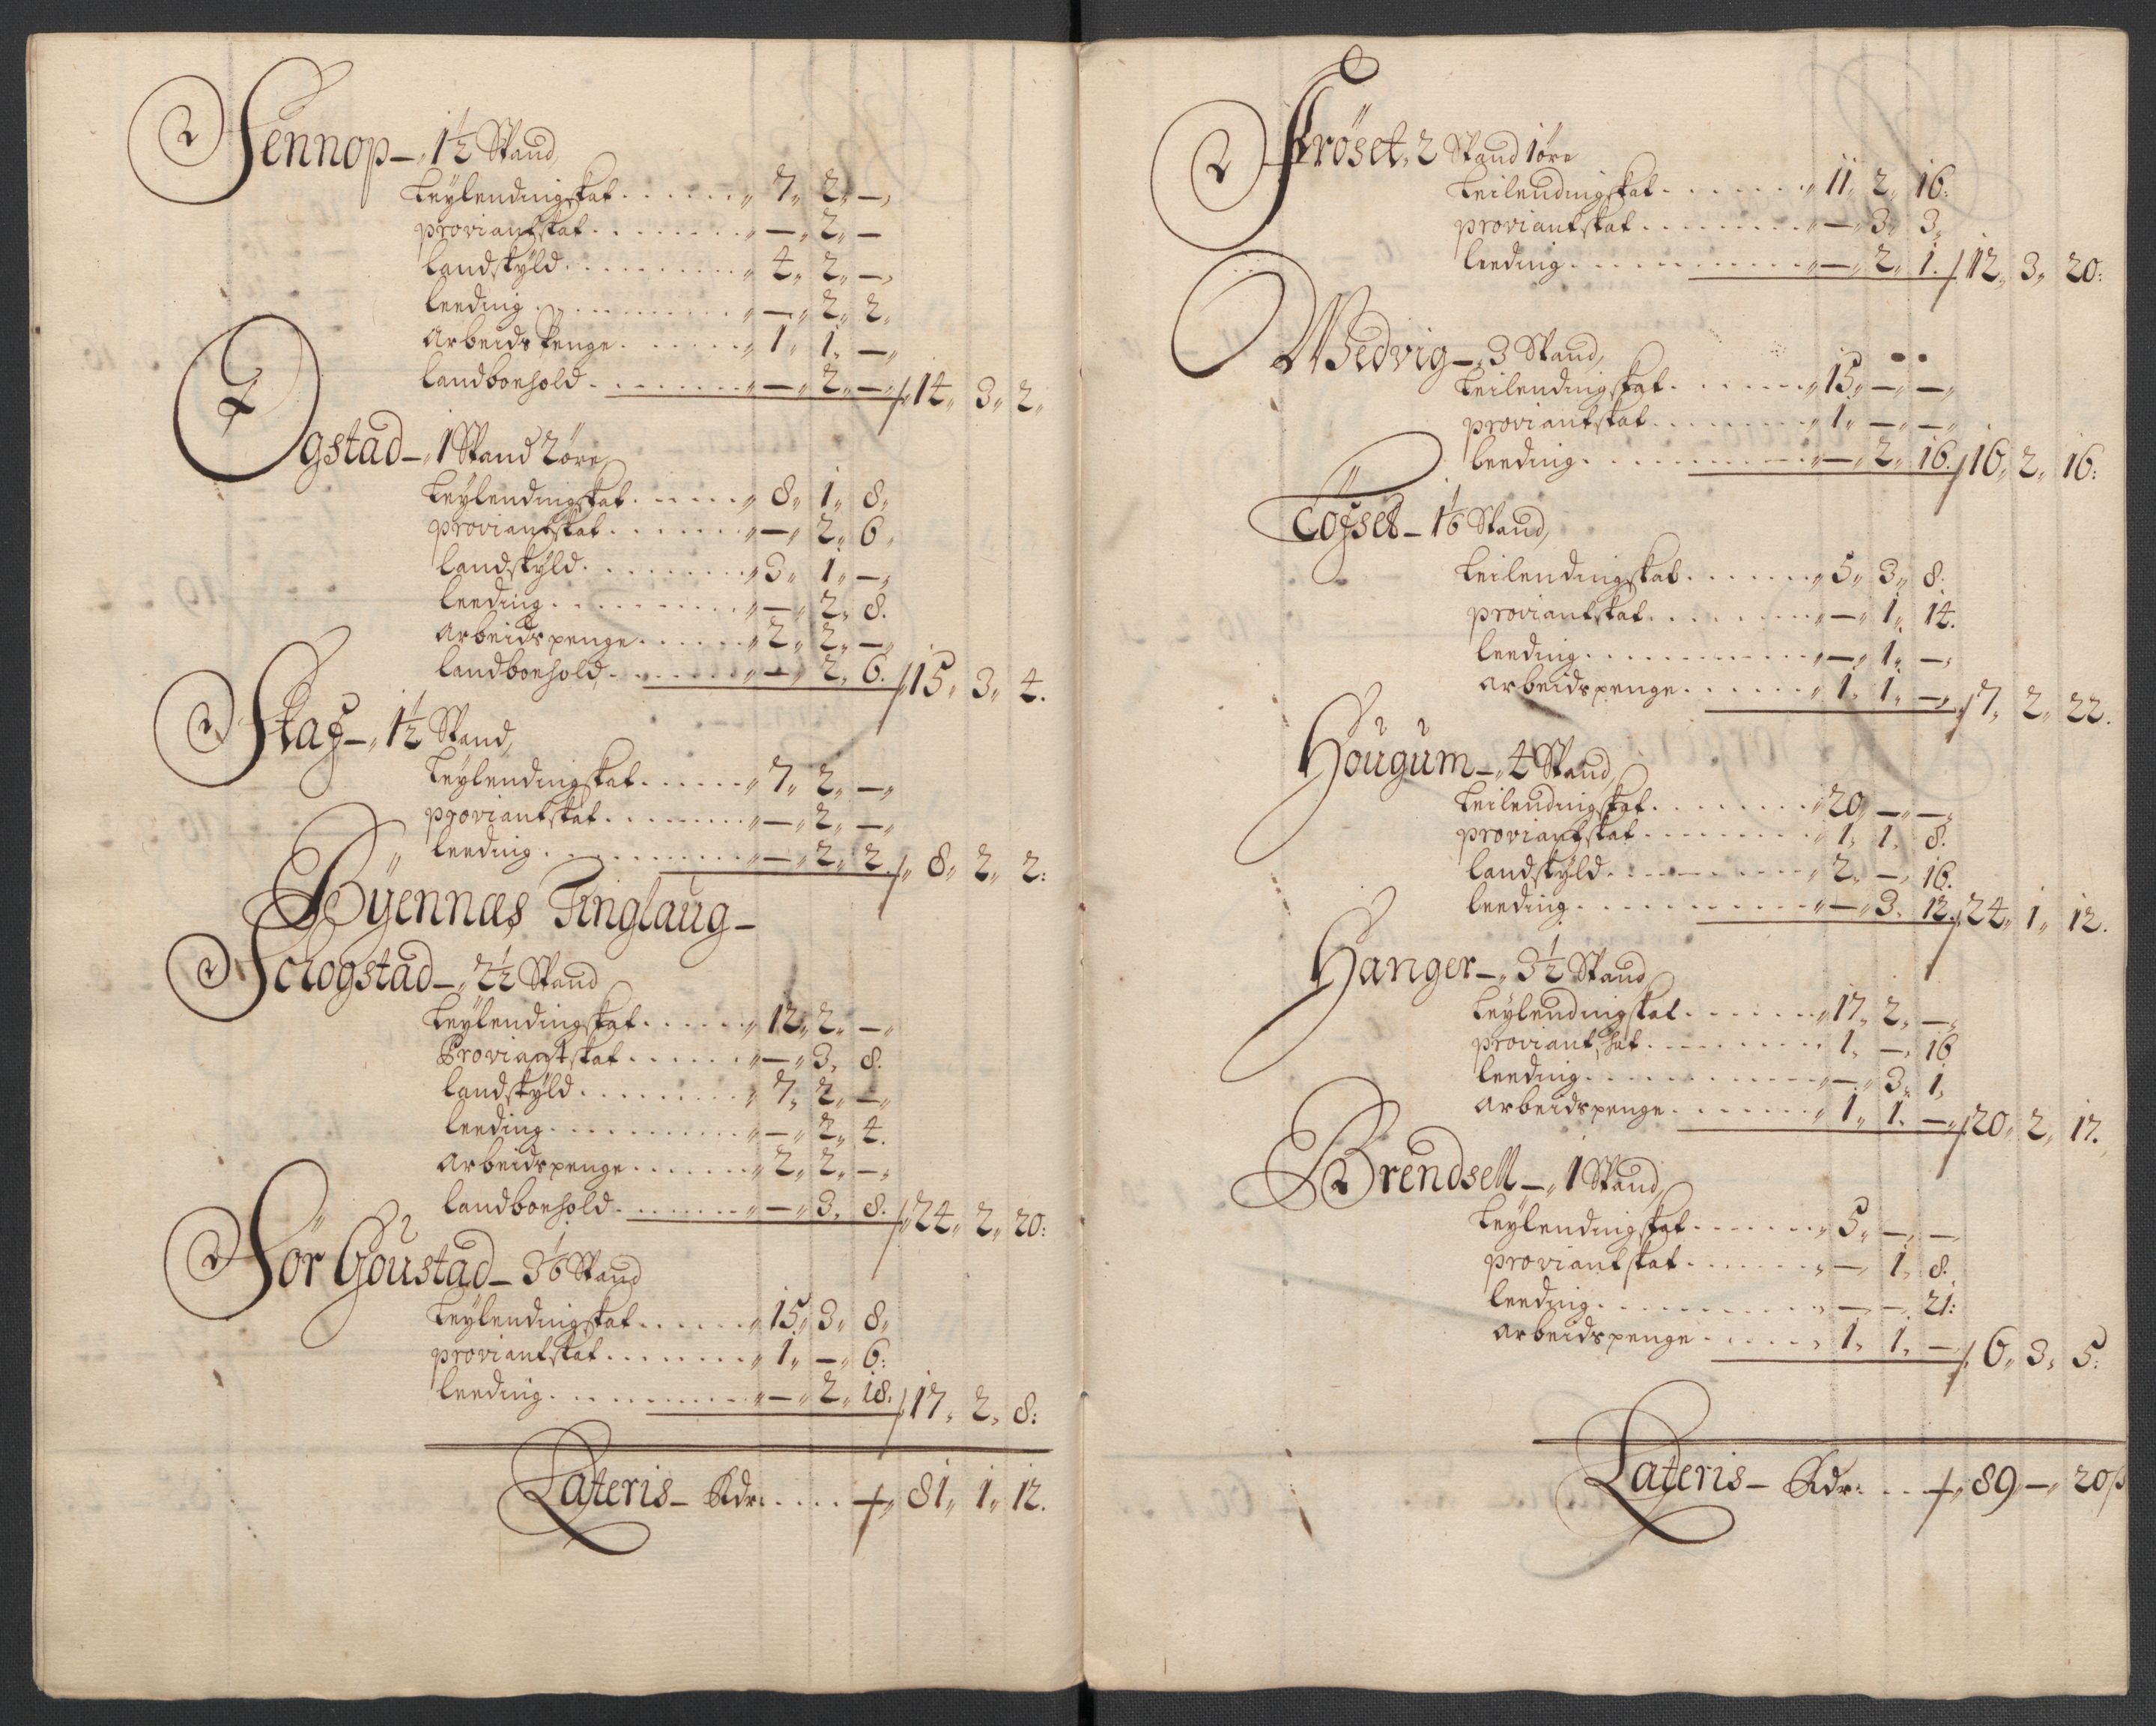 Sennop – 1½ Spand
Leylendingskat . . . . . . „ 7„ 2„ –„
proviantskat . . . . . . . . „ –„ 2„ –
Landskyld . . . . . . . . . . „ 4„ 2„ –„
Leeding . . . . . . . . . . „ –„ 2„ 2„
Arbeids penge . . . . . . „ 1„ 1„ –„
Landboehold . . . . . . . . „ –„ 2„ –„ / 14„ 3„ 2„
Ogstad – „ 1 Spand 2 øre
Leylendingskat . . . . . . „ 8„ 1„ 8„
proviantskat . . . . . . . „ –„ 2„ 6„
Landskyld . . . . . . . . . „ 3„ 1„ –„
Leeding . . . . . . . . . . „ –„ 2„ 8.
Arbeidspenge . . . . . . „ 2„ 2„ –„
Landboehold . . . . . . . „ –„ 2„ 6. / „ 15„ 3„ 4.
Stav – „ 1½ Spand,
Leylendingskat . . . . . . „ 7„ 2„ –„
proviantskat . . . . . . . . „ –„ 2„ –„
Leeding . . . . . . . . . . . „ –„ 2„ 2 / „ 8„ 2„ 2:
Byennæs Tinglaug –
Schogstad – „ 2½ Spand
Leylendingskat . . . . . . „ 12„ 2„ –„
Proviantskat . . . . . . „ –„ 3„ 8.
Landskyld . . . . . . . . . „ 7„ 2„ –„
Leeding . . . . . . . . . . . „ –„ 2„ 4.
Arbeidspenge . . . . . . . „ 2„ 2„ –„
Landboehold . . . . . . . „ –„ 3„ 8. / „ 24„ 2„ 20:
Sør Goustad – 3⅙ Spand
Leylendingskat . . . . . . „ 15„ 3„ 8„
proviantskat . . . . . . . . „ 1„ –„ 6:
Leeding . . . . . . . . . . . „ –„ 2„ 18. / 17„ 2„ 8:
Lateris – Rdr: . . . . „ 81„ 1„ 12.
Frøset, 2 Spand 1 øre
Leilendingskat . . . . . . . „ 11„ 2„ 16:
proviantskat . . . . . . . . . „ –„ 3„ 3„
Leeding . . . . . . . . . . . . „ –„ 2„ 1. / 12„ 3„ 20:
Wedvig – „ 3 Spand,
Leilendingskat . . . . . . . „ 15„ –„ –„
proviantskat . . . . . . . . „ 1„ –„ –„
Leeding . . . . . . . . . . . „ –„ 2„ 16. / 16„ 2„ 16:
Tofset – 1⅙ Spand,
Leilendingskat . . . . . . . „ 5„ 3„ 8.
proviantskat . . . . . . . . „ –„ 1„ 14.
Leeding . . . . . . . . . . . „ –„ 1„ –„
Arbeidspenge . . . . . . „ 1„ 1„ –„ / 7„ 2„ 22.
Hougum – „ 4 Spand,
Leilendingskat . . . . . . . . „ 20„ –„ –„
proviantskat . . . . . . . . . „ 1„ 1„ 8.
Landskyld . . . . . . . . . . „ 2„ –„ 16.
Leeding . . . . . . . . . . . . „ –„ 3„ 12. / 24„ 1„ 12.
Hanger – „ 3½ Spand
Leylendingskat . . . . . . „ 17„ 2„ –„
proviantskat . . . . . . . . . 1„ –„ 16
Leeding . . . . . . . . . . . „ –„ 3„ 1„
Arbeidspenge . . . . . . . „ 1„ 1„ –„ / 20„ 2„ 17.
Brendsell – „ 1 Spand,
Leylendingskat . . . . . . . „ 5„ –„ –„
proviantskat . . . . . . . „ –„ 1„ 8.
Leeding . . . . . . . . . . . „ –„ –„ 21:
Arbeidspenge . . . . . „ 1„ 1„ –„ / 6„ 3„ 5:
Lateris – Rdr: . . . „ 89„ –„ 20ß